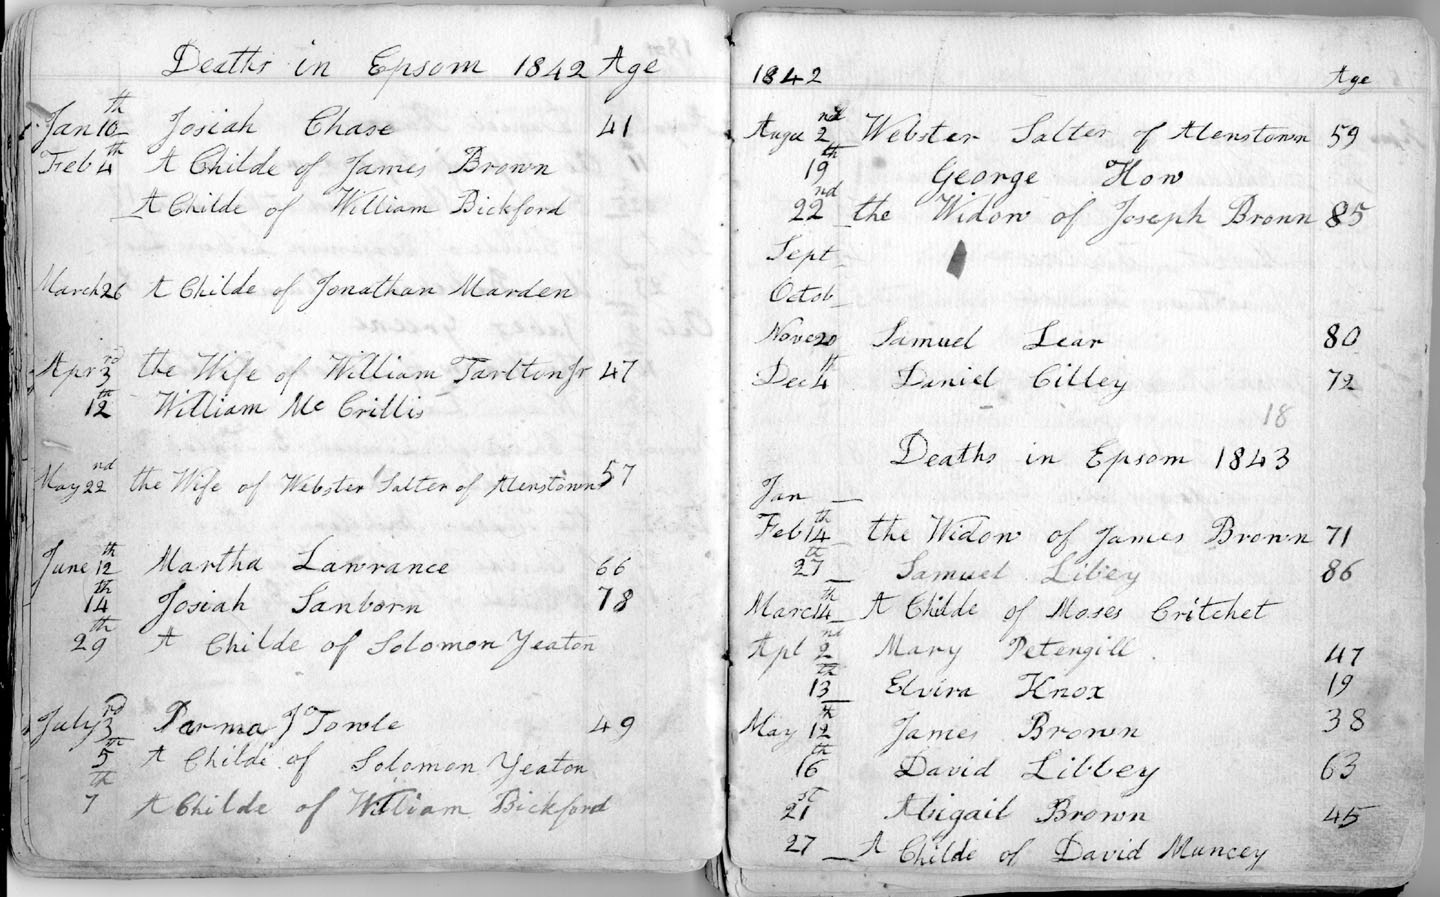 Deaths in Epsom 1842 Age
Jan 10th Josiah Chase 41
Feb 4th A Childe of James Brown
A Childe of William Bickford
March 26 A Childe of Jonathan Marden
Apr 3rd the Wife of William Tarlton Jr 47
12th William Mc Crillis
May 22nd the Wife of Webster Salter of Alenstown 57
June 12th Martha Lawrance 66
14th Josiah Sanborn 78
29th A Childe of Solomon Yeaton
July 3rd Parma J Towle 49
5th A Childe of Solomon Yeaton
7th A Childe of William Bickford
1842 Age
Augu 2nd Webster Salter of Alenstown 59
19th George How
22nd the Widow of Joseph Brown 85
Sept
Octob
Nove 20 Samuel Lear 80
Dec 4th Daniel Cilley 72
18
Deaths in Epsom 1843
Jan
Feb 14th the Widow of James Brown 71
27th Samuel Libey 86
March 14th A Childe of Moses Critchet
Apl 2nd Mary Petengill 47
13th Elvira Knox 19
May 12th James Brown 38
16th David Libbey 63
21st Abigail Brown 45
27 A Childe of David Muncey